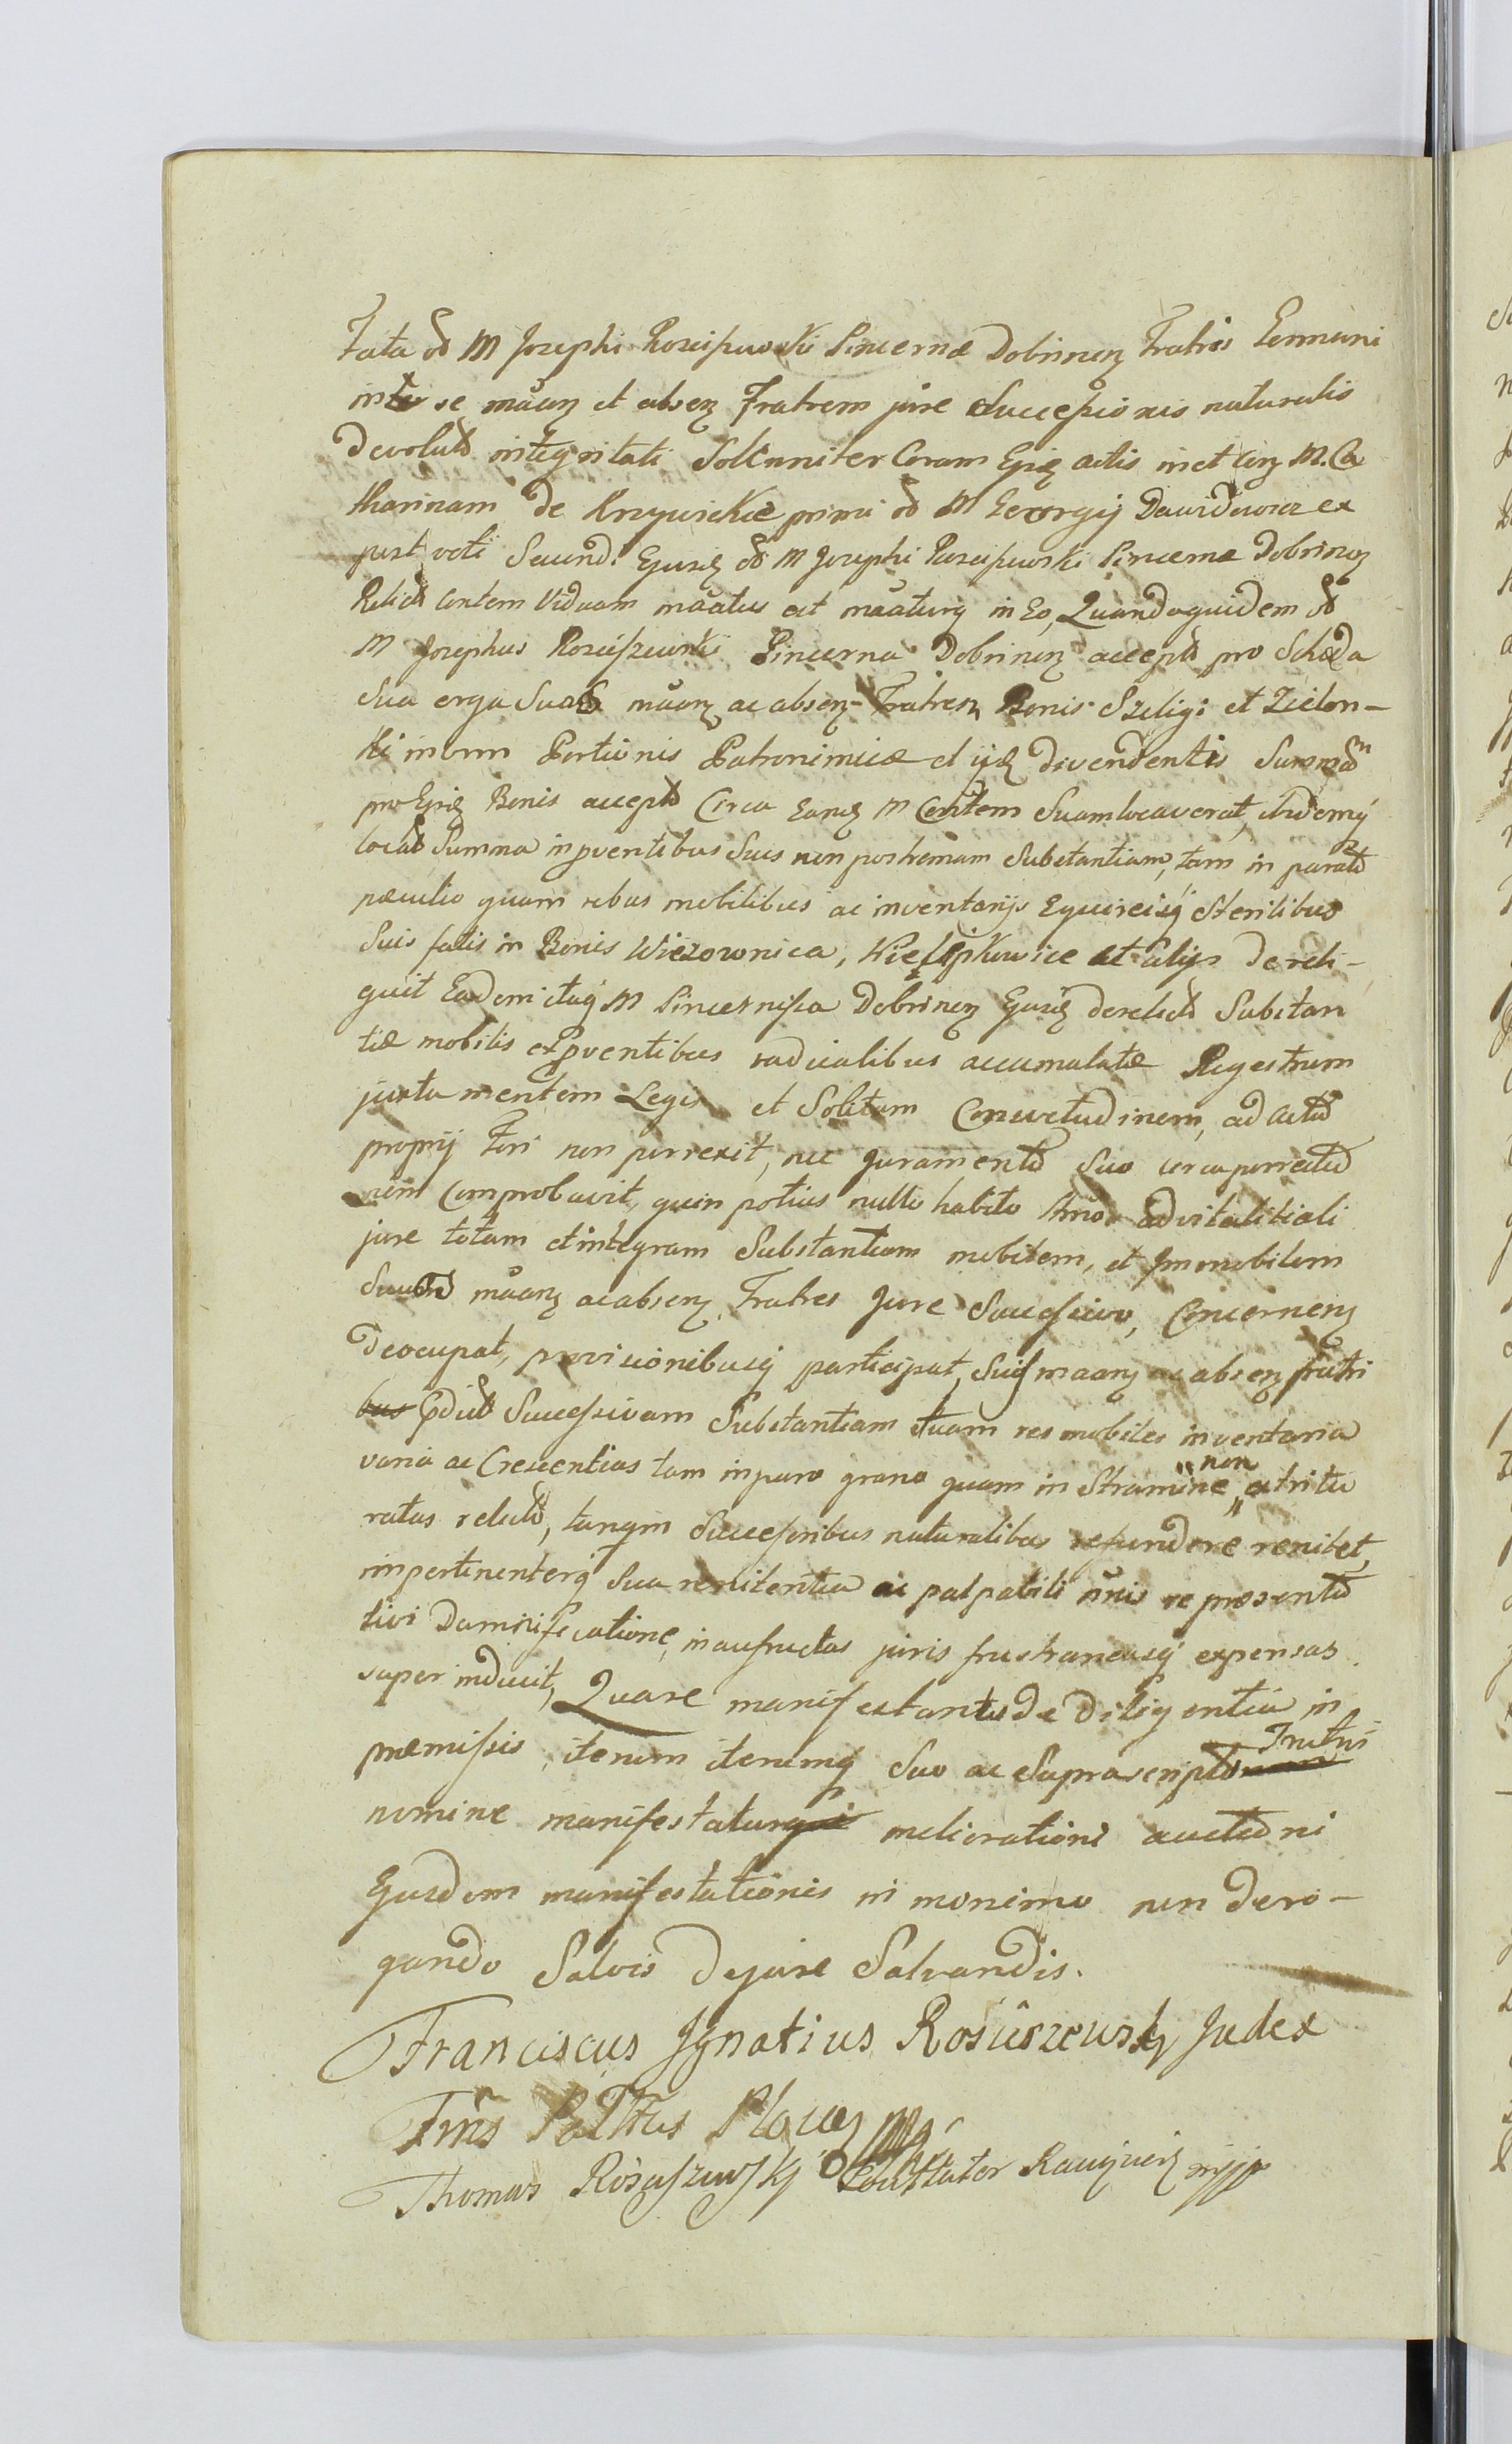 Fata od M Josephi Rosciszewski Pincernæ Dobrinen Fratris Germani
inter se mãan et absen Fratrem jure Successionis naturalis
Devolutæ integritati Solenniter Coram Ejusq actis in et con M. Ca
tharinam de Krzywickie primi od M Georgij Dawidowicz ex
post voti Secundi Ejusq od M Josephi Rosciszewski Pincernæ Dobrinen
Relict Contem Viduam mãatus est mãaturq in Eo, Quandoquidem od
M Josephus Rosciszewski Pincerna Dobrinen accepta pro Scheda
Sua erga Suos mãan ac absen Fratres Bonis Szeligi et Zielon-
ki in vim Portionis Patrimoniæ et ijsq divendentis Summam
pro Ejsq Bonis accept Circa Eandq M Contem Suam locaverat, itidemq
locat Summa in pventibus Suis non postremam Substantiam, tam in parato
pæculio quam rebus mobilibus ac inventarijs Equireisq Sterilibus
Suis satis in Bonis Wiezownica, et alijs dereli-
quit Eadem itaq M Pincernissa Dobrinen Ejusq derelict Substan
tiæ mobilis ex pventibus radicalibus accumulatæ Regestrum
juxta mentem Legis et Solitam Consvetudinem, ad acta
proprij Fori non porrexit, nec Juramento Suo circa porrect
comprobavit, quin potius nullo habito advitalitiali
jure totam et integram Substantiam mobilem, et Immobilem
mãan ac absen Fratres Jure Successivo, Concernen
deocupat, provisionibusq participat, Suisq mãan ac absen fratri
bus pdict Successivam Substantiam Suam res mobiles inventaria
varia ac Crescentias tam in puro grano quam in Stramine non extritu
ratas relict, tanqm Successoribus naturalibus refundere renitet,
impertinenterq Sua renitentia ac palpabili repræsenta
tivi Damnificatione, inaufructas juris frustraneasq expensas
super inducit, Quare manifestantes de Diligentia in
præmissis iterum iterumq Suo ac Suprascripto Fratris
nomine manifestatur melioratione auctione
Ejusdem manifestationis in monimo non dero-
gando Salvis de jure Salvandis.
Franciscus Ignatius Rosciszewsky Judex
Thomas Rosciszewsky